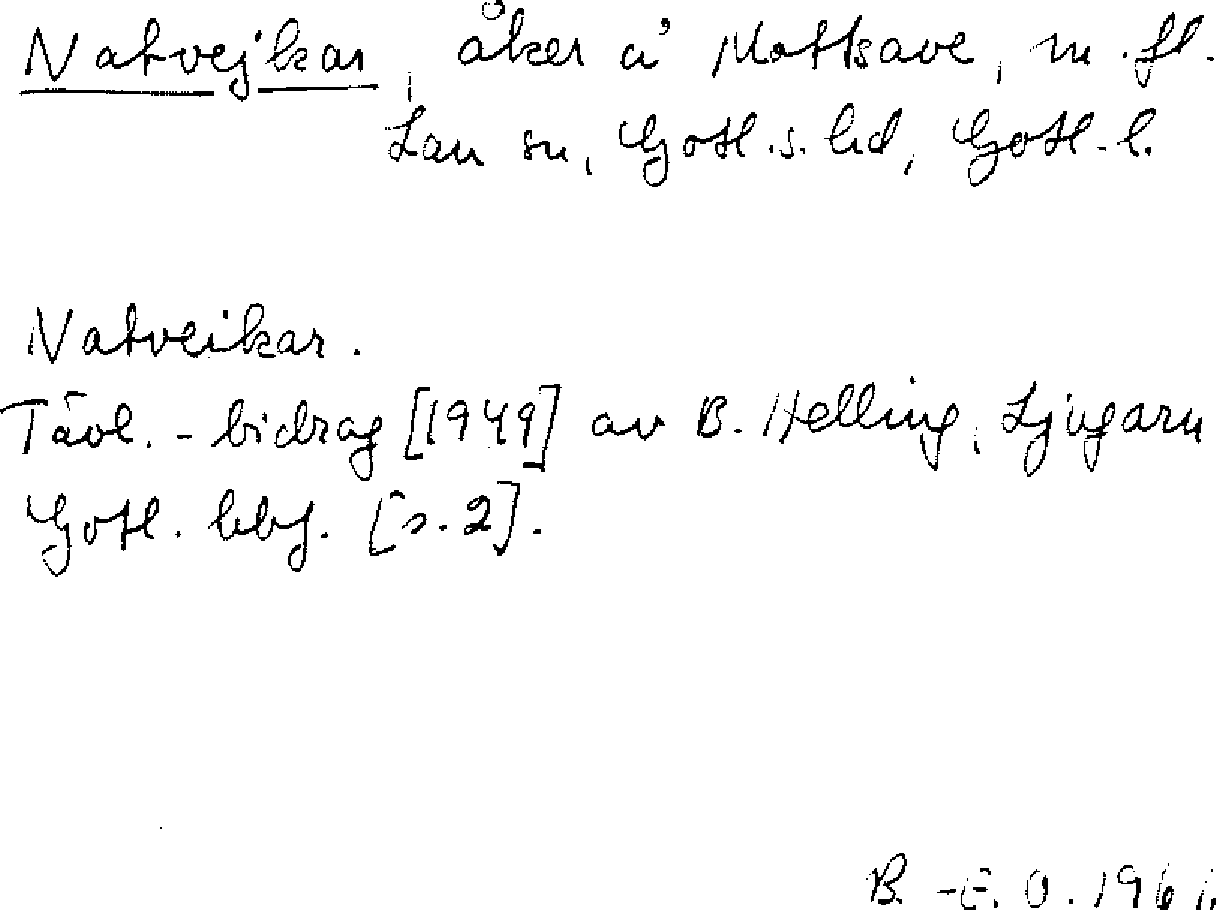 Natvejkar, åker å Mattsave, m.fl.
Lau sn, Gotl.s.hd, Gotl.l.
Natveikar.
Tävl.-bidrag [1949] av B. Helling, Ljugarn
Gotl. hbf. [s.2].
B.-E.O. 1961.